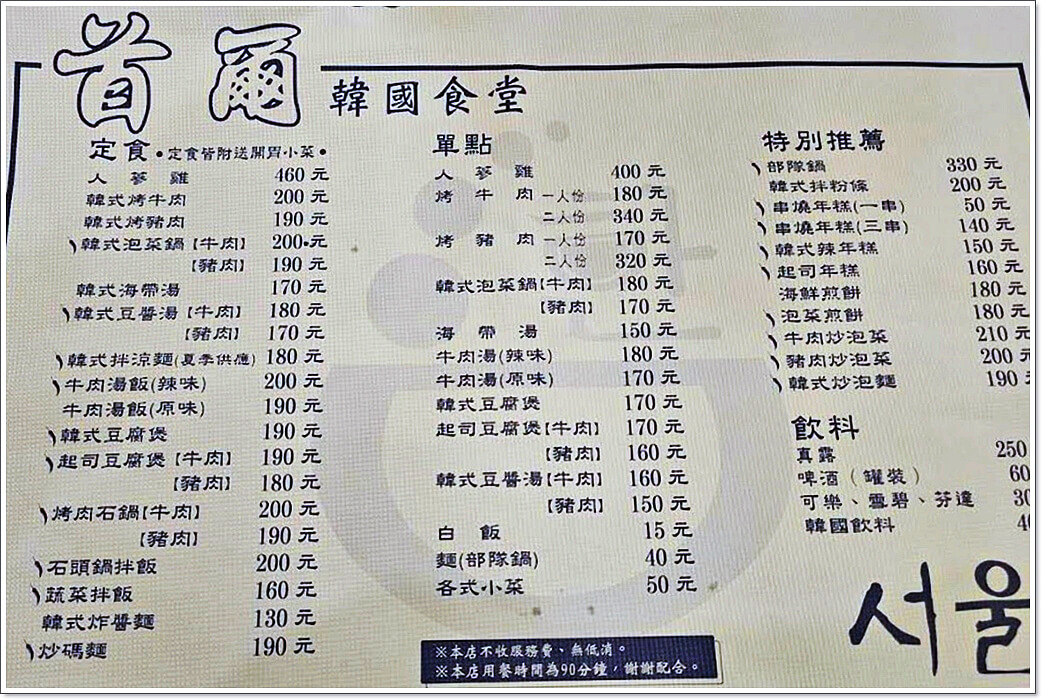 首爾 韓國食堂
定食 •定食皆附送開胃小菜•
人蔘雞 460元
韓式烤牛肉 200元
韓式烤豬肉 190元
韓式泡菜鍋【牛肉】 200元
【豬肉】 190元
韓式海帶湯 170元
韓式豆醬湯【牛肉】 180元
【豬肉】 170元
韓式拌涼麵(夏季供應) 180元
牛肉湯飯(辣味) 200元
牛肉湯飯(原味) 190元
韓式豆腐煲 190元
起司豆腐煲【牛肉】 190元
【豬肉】 180元
烤肉石鍋【牛肉】 200元
【豬肉】 190元
石頭鍋拌飯 200元
蔬菜拌飯 160元
韓式炸醬麵 130元
炒碼麵 190元
單點
人蔘雞 400元
烤牛肉 一人份 180元
二人份 340元
烤豬肉 一人份 170元
二人份 320元
韓式泡菜鍋【牛肉】 180元
【豬肉】 170元
海帶湯 150元
牛肉湯(辣味) 180元
牛肉湯(原味) 170元
韓式豆腐煲 170元
起司豆腐煲【牛肉】 170元
【豬肉】 160元
韓式豆醬湯【牛肉】 160元
【豬肉】 150元
白飯 15元
麵(部隊鍋) 40元
各式小菜 50元
※本店不收服務費、無低消。
※本店用餐時間為90分鐘，謝謝配合。
特別推薦
部隊鍋 330元
韓式拌粉條 200元
串燒年糕(一串) 50元
串燒年糕(三串) 140元
韓式辣年糕 150元
起司年糕 160元
海鮮煎餅 180元
泡菜煎餅 180元
牛肉炒泡菜 210元
豬肉炒泡菜 200元
韓式炒泡麵 190元
飲料
真露 250
啤酒（罐裝） 60
可樂、雪碧、芬達
韓國飲料
서울